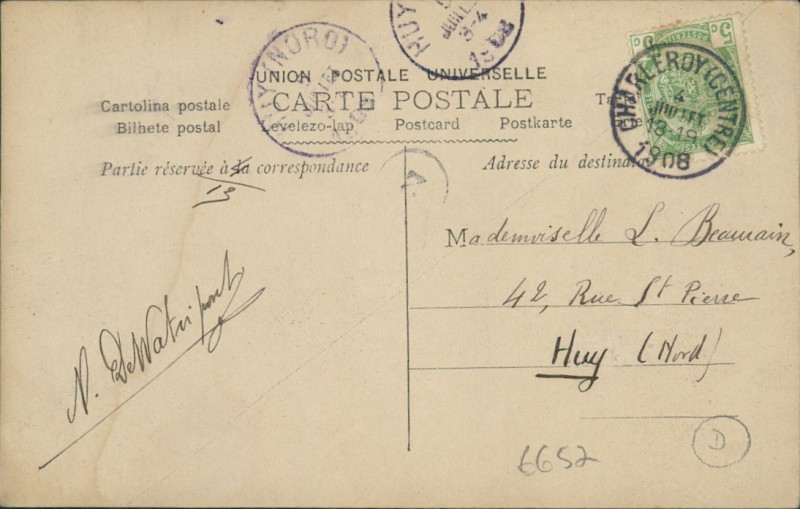 HUY
JUIL
3-4
1908
HUY (NORD)
UNION POSTALE UNIVERSELLE
CARTE POSTALE
Cartolina postale
Bilhete postal
Levelezo-lap
Postcard
Postkarte
5
CHARLEROY (CENTRE)
4
JUILLET
18-19
1908
Partie réservée à la correspondance
Adresse du destinata
13
Mademoiselle L. Beaurain,
42, Rue St Pierre
Huy (Nord)
N. DeWatripont
D
6652